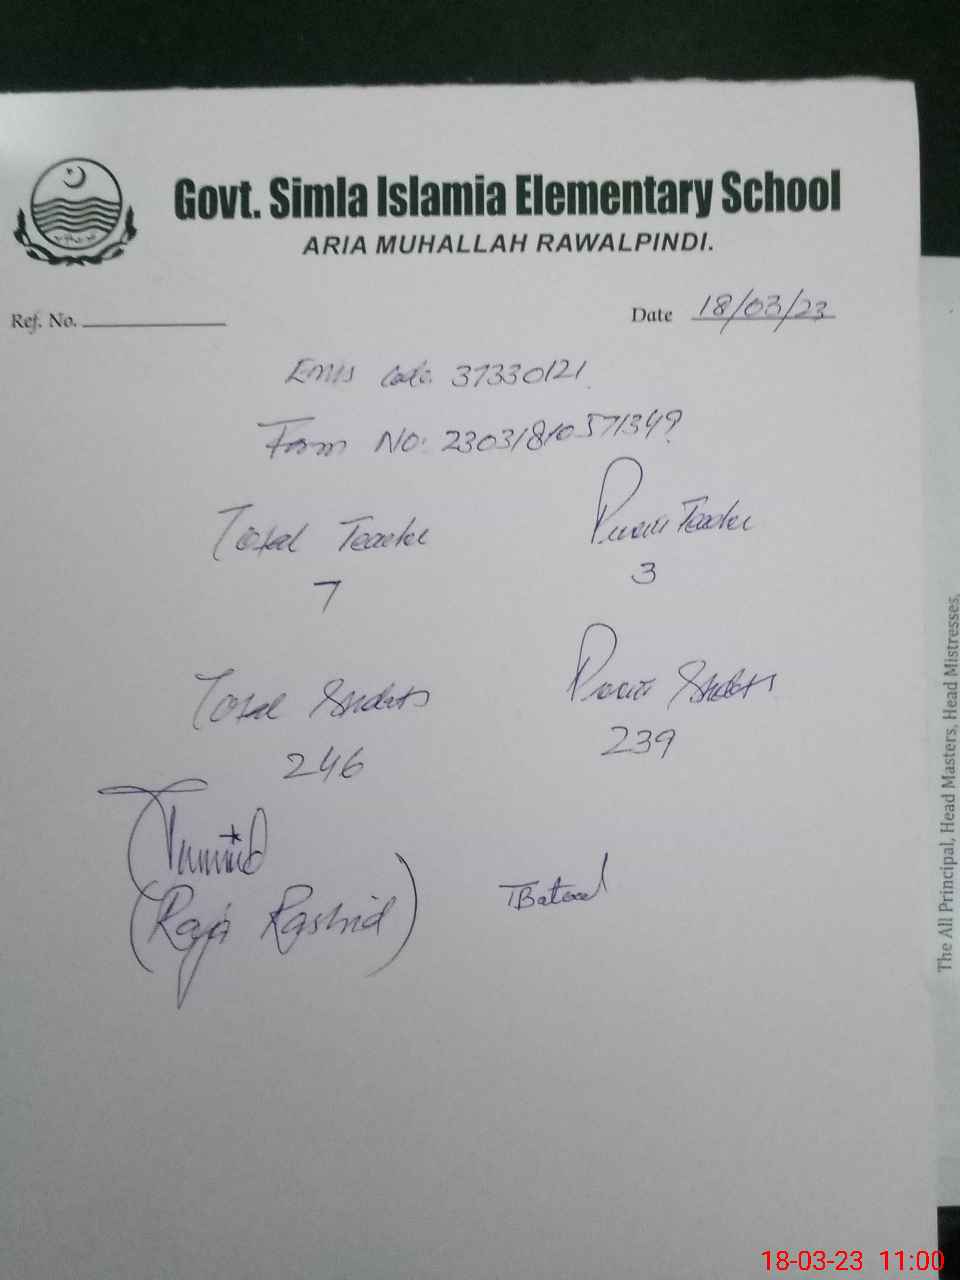 Govt. Simla Islamia Elementary School
ARIA MUHALLAH RAWALPINDI.
Ref. No.
Date 18/03/23
Emis Code. 37330121
Form No: 23031810571349
Total Teacher
Teacher
7
3
Total Students
Students
246
239
(Raja Rashid)
TBatool
The All Principal, Head Masters, Head Mistresses,
18-03-23 11:00